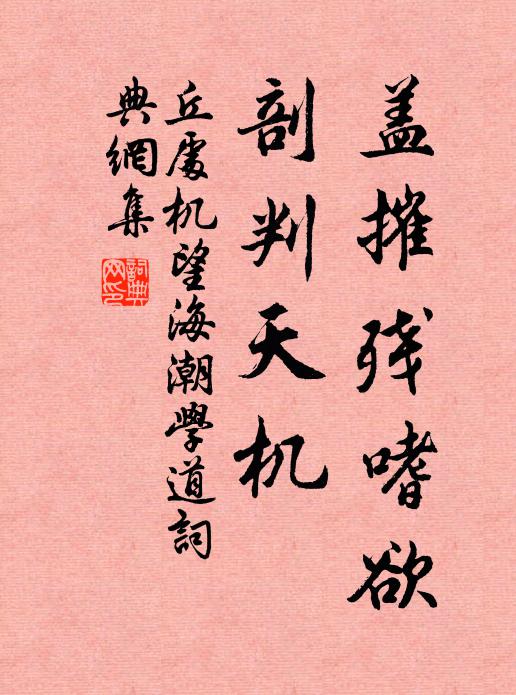 盖摧残嗜欲
剖判天机
丘處机望海潮學道詞
典網集
詞典
网印